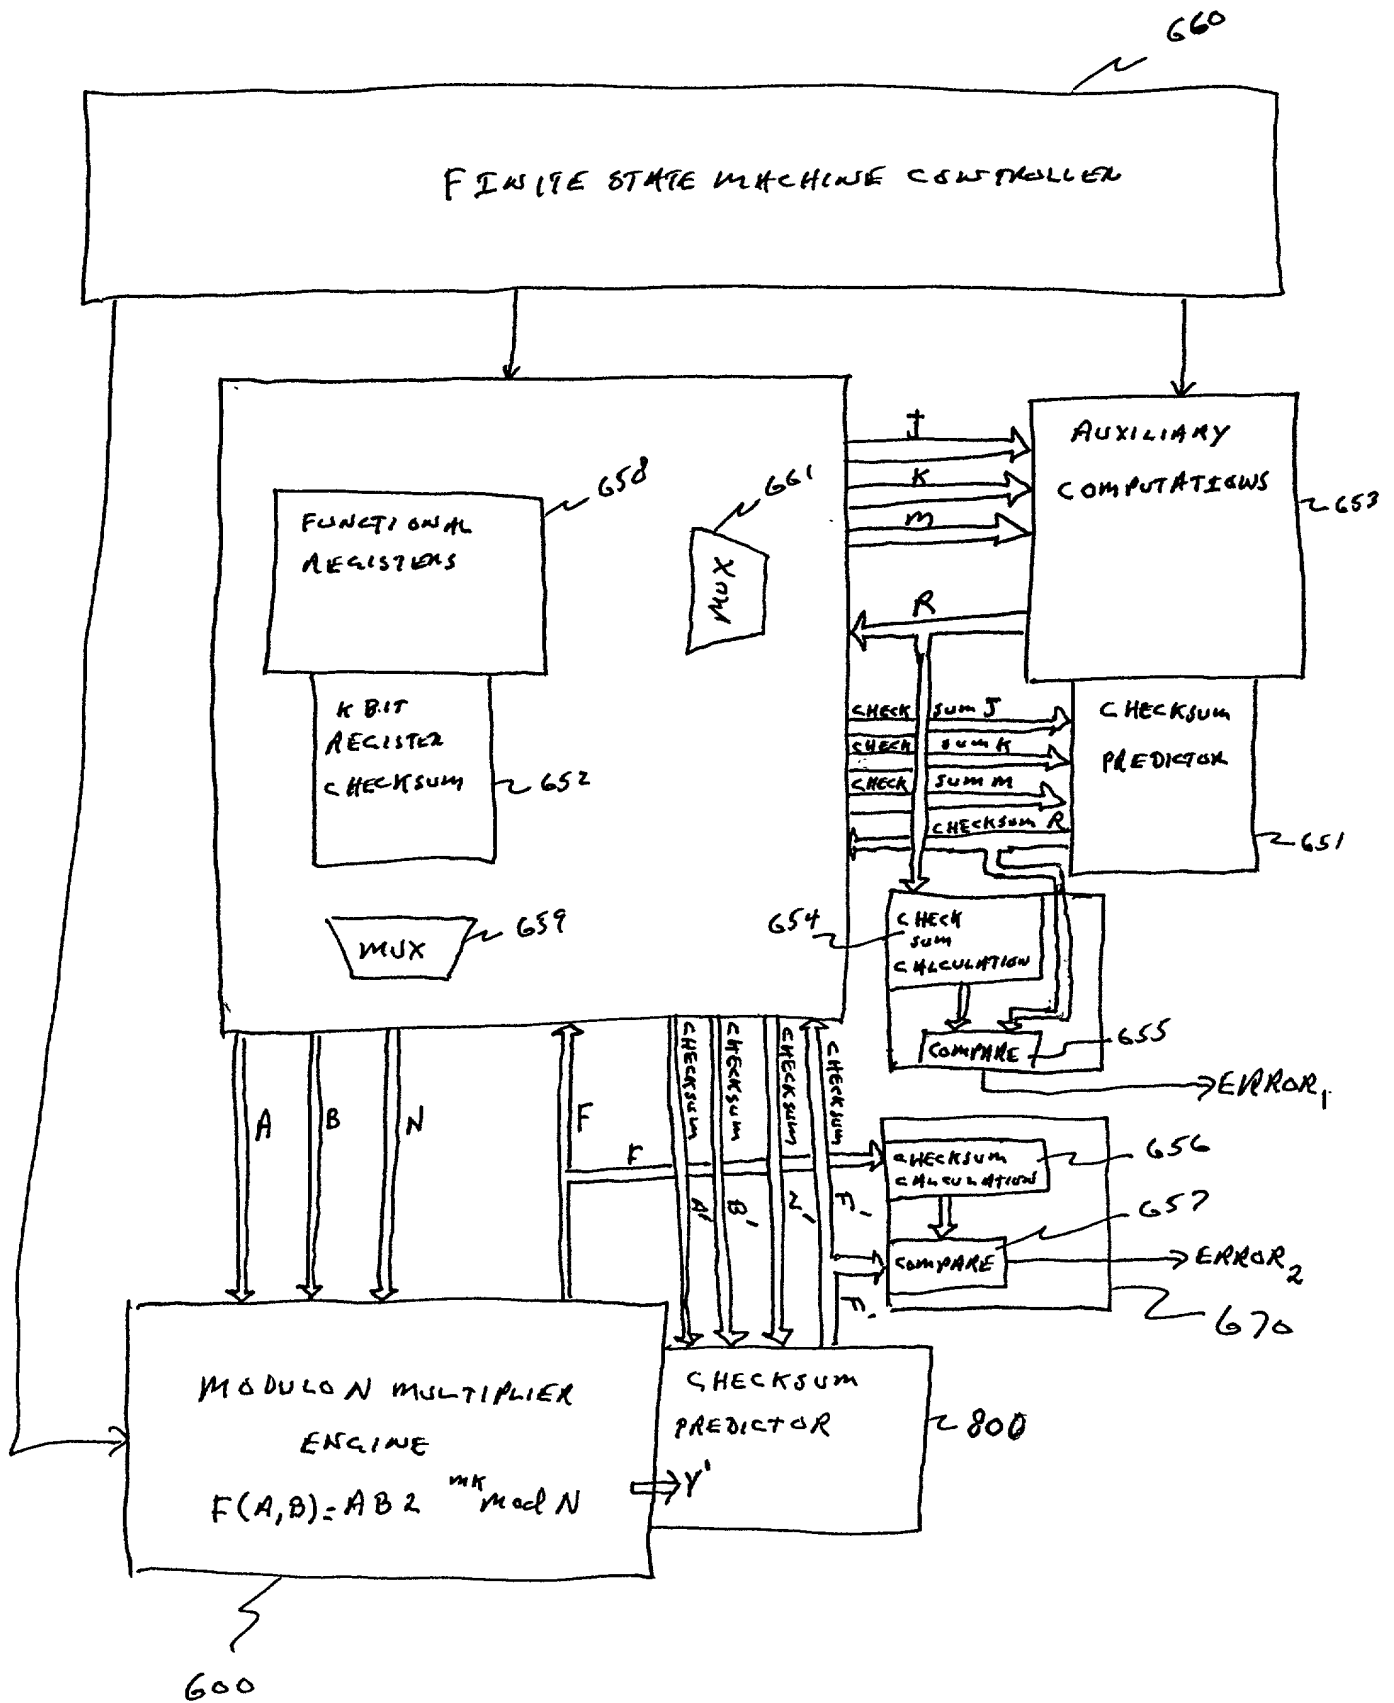 660
FINITE STATE MACHINE CONTROLLER
FUNCTIONAL
REGISTERS
658
K BIT
REGISTER
CHECKSUM
652
MUX
661
MUX
659
J
K
M
R
AUXILIARY
COMPUTATIONS
653
CHECK SUM J
CHECK SUM K
CHECK SUM M
CHECKSUM R
CHECKSUM
PREDICTOR
651
654
CHECK
SUM
CALCULATION
COMPARE
655
ERROR1
A
B
N
F
F
CHECKSUM A'
CHECKSUM B'
CHECKSUM N'
CHECKSUM F'
F'
CHECKSUM
CALCULATION
656
COMPARE
657
ERROR2
670
MODULO N MULTIPLIER
ENGINE
F(A,B)=AB2 mk mod N
Y'
CHECKSUM
PREDICTOR
800
600